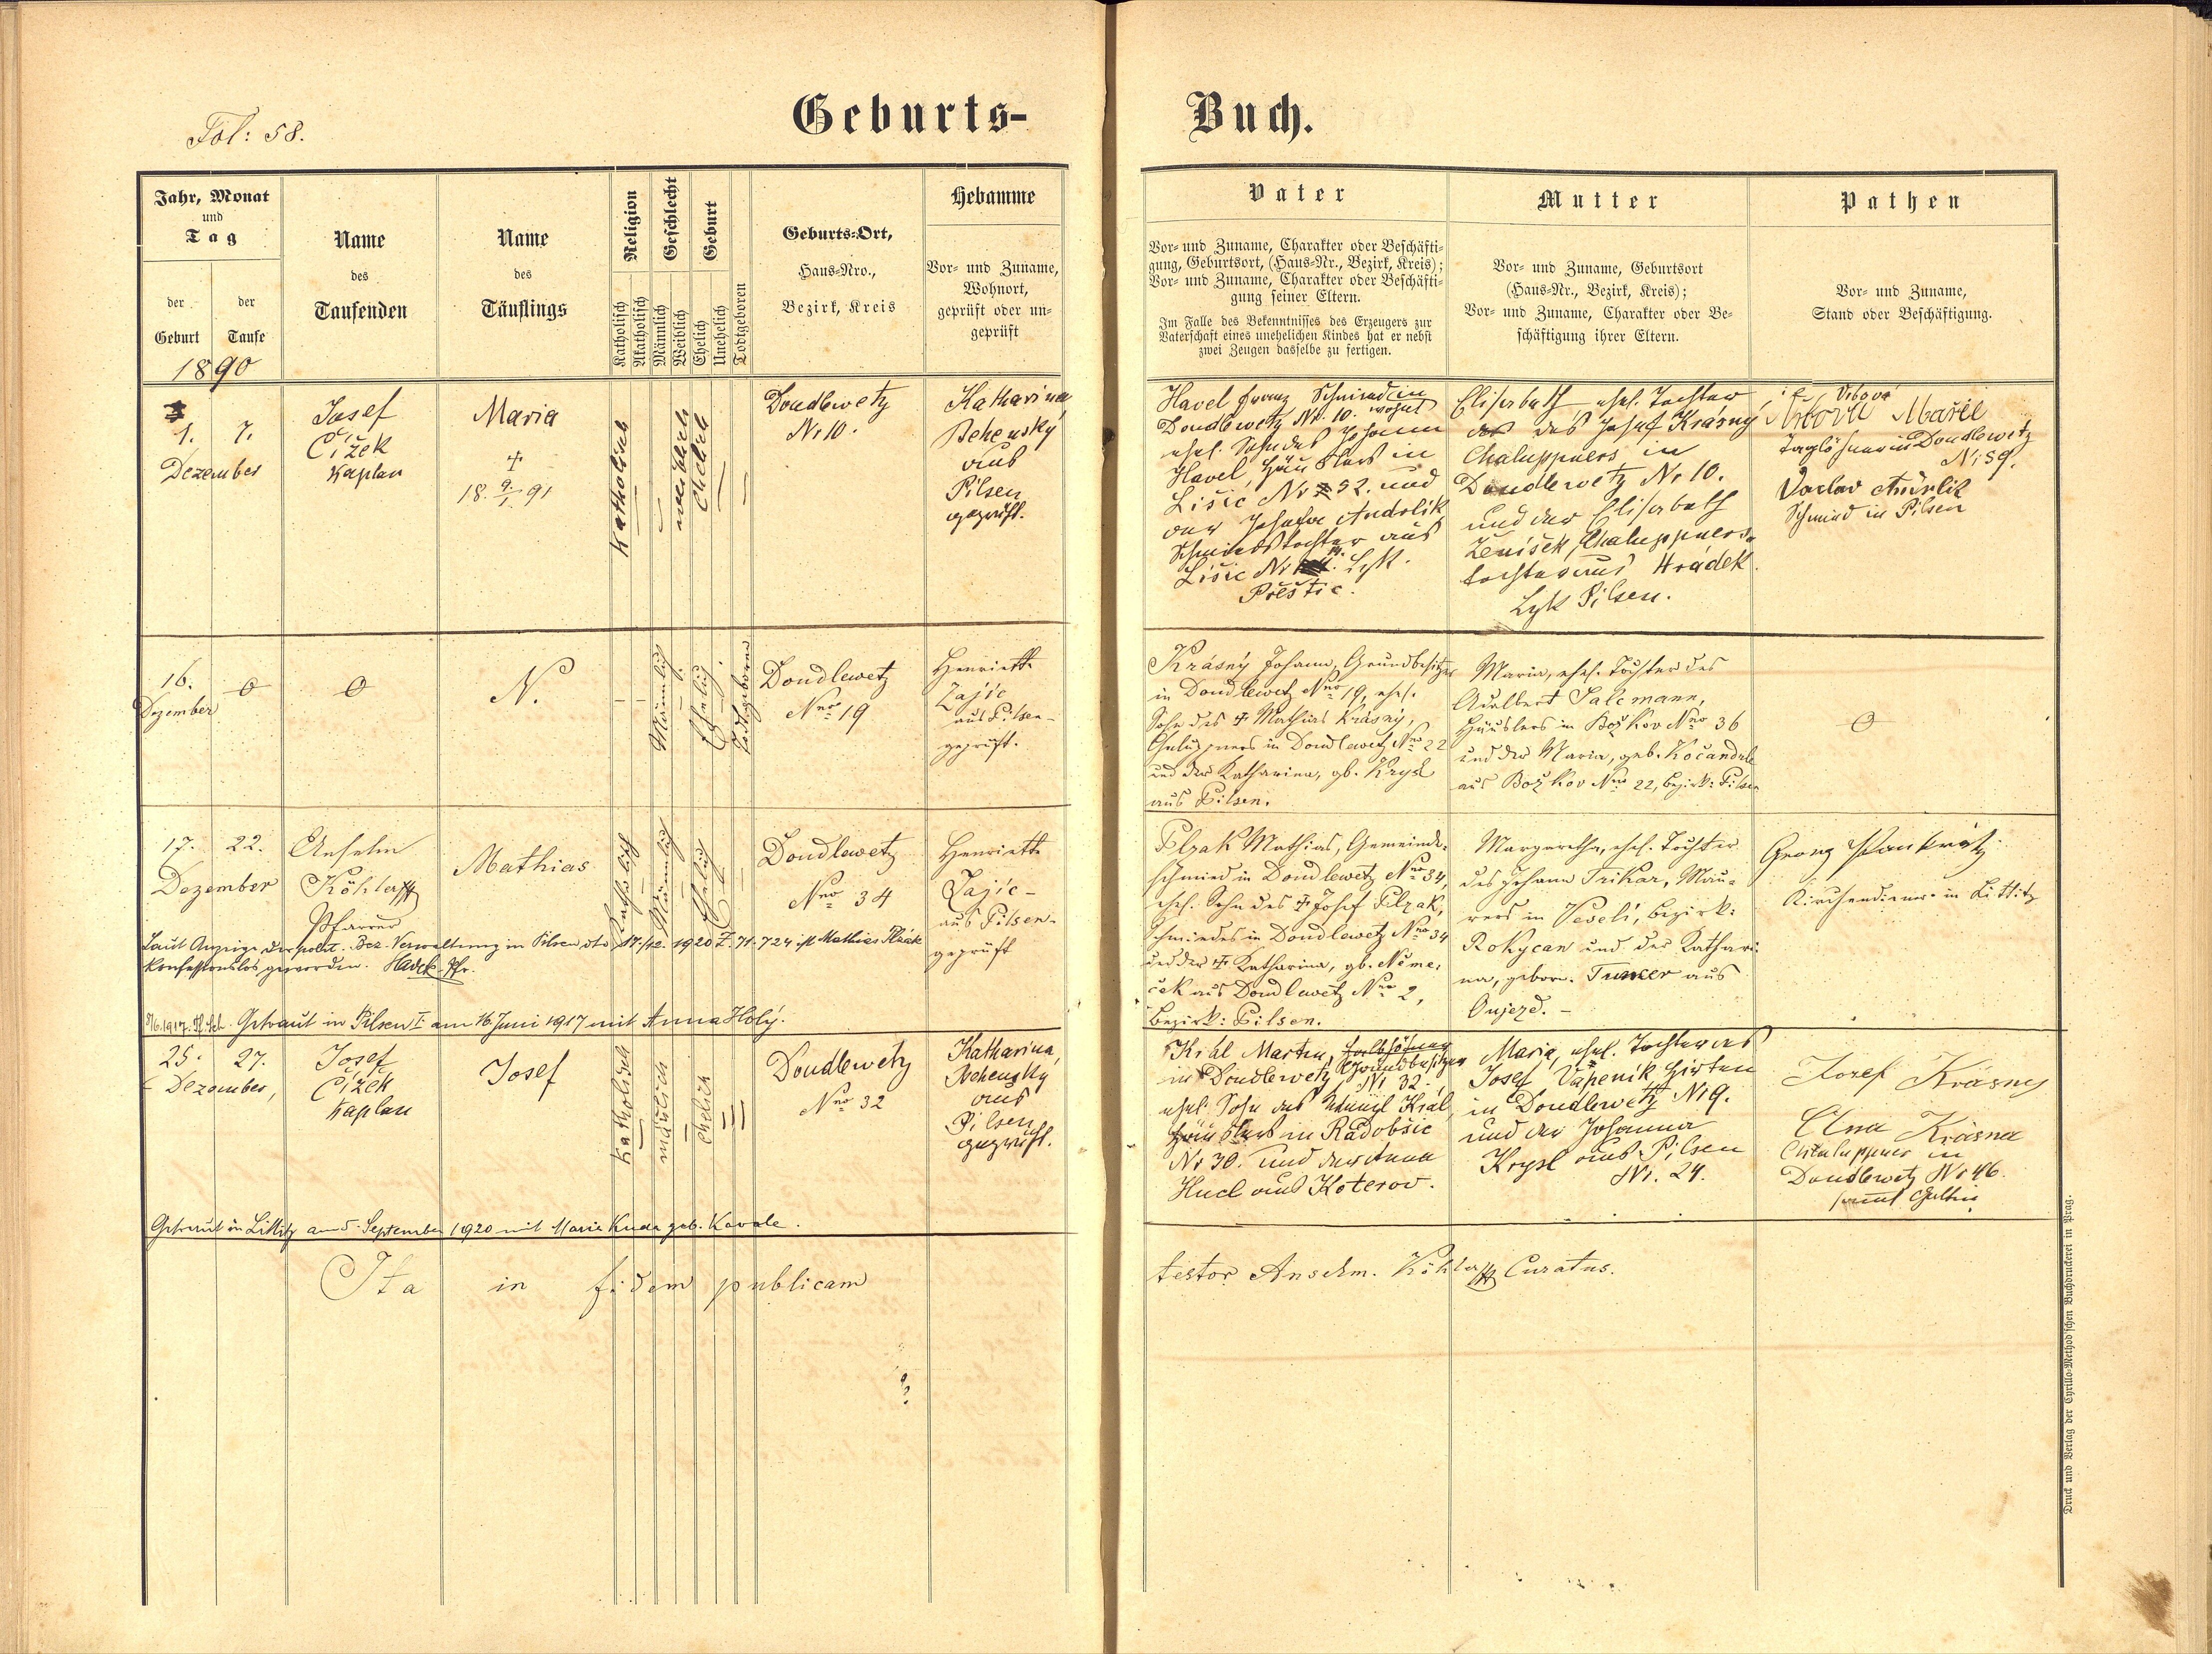 Fol: 58.
Geburts-
Buch.
Jahr, Monat
und
Tag
der
Geburt
der
Taufe
1890
Name
des
Taufenden
Name
des
Täuflings
Religion
Katholisch
Akatholisch
Geschlecht
Männlich
Weiblich
Geburt
Ehelich
Unehelich
Todtgeboren
Geburts-Ort,
Haus-Nro.,
Bezirk, Kreis
Hebamme
Vor- und Zuname,
Wohnort,
geprüft oder un-
geprüft
Vater
Vor- und Zuname, Charakter oder Beschäfti-
gung, Geburtsort, (Haus-Nr., Bezirk, Kreis);
Vor- und Zuname, Charakter oder Beschäfti-
gung seiner Eltern.
Im Falle des Bekenntnisses des Erzeugers zur
Vaterschaft eines unehelichen Kindes hat er nebst
zwei Zeugen dasselbe zu fertigen.
Mutter
Vor- und Zuname, Geburtsort
(Haus-Nr., Bezirk, Kreis);
Vor- und Zuname, Charakter oder Be-
schäftigung ihrer Eltern.
Pathen
Vor- und Zuname,
Stand oder Beschäftigung.
1. 7.
Dezember
Josef
Čížek
Kaplan
Maria
†
18 9/1 91
Katholisch
weiblich
Ehelich
Doudlewetz
Nr 10.
Katharina
Behensky
aus
Pilsen
geprüft.
Havel Franz Schmied in
Doudlewetz Nr. 10. wohnt
ehel. Sohn des Johann
Havel, Häuslers in
Lišic Nr 32. und
der Josefa Andrlik
Schmiedstochter aus
Lišic Nr
Přeštic.
Elisabeth ehel. Tochter
des Josef Krásný
Chaluppners in
Doudlewetz Nr 10.
und der Elisabeth
Ženíšek, Chaluppners-
tochter aus Hrádek
Pilsen.
Vrbová
Marie
Taglöhnerin Doudlewetz
Nr 59.
Václav Andrlik
Schmied in Pilsen
16.
Dezember
0
0
N.
Männlich.
Ehelich.
Todtgeboren
Doudlewetz
Nro 19
Henriette
Zajíc
aus Pilsen
geprüft.
Krásný Johann, Grundbesitzer
in Doudlewetz Nro 19, ehel.
Sohn des † Mathias Krásný,
Chaluppners in Doudlewetz Nro 22
und der Katharina, gb. Krysl
aus Pilsen.
Maria, ehel. Tochter des
Adalbert Salcmann,
Häuslers in Božkov Nro 36
und der Maria, geb. Kočandrle
aus Božkov Nro 22, Bezirk: Pilsen
0
17. 22.
Dezember
Anselm
Köhler
Pfarrer
Mathias
Katholisch
Männlich
Ehelich
Doudlewetz
Nro 34
Henriette
Zajíc
aus Pilsen
geprüft
Plzak Mathias, Gemeinde-
schmied in Doudlewetz Nro 34,
ehel. Sohn des † Josef Plzak,
Schmiedes in Doudlewetz Nro 34
und der † Katharina, gb. Něme-
ček aus Doudlewetz Nro 2,
Bezirk: Pilsen.
Margaretha, ehel. Tochter
des Johann Trikar, Mau-
rers in Veselí, Bezirk:
Rokycan und der Kathari-
na, gebor. Tuncer aus
Oujezd. -
Georg Pankratz
Kirchendiener in Littitz
Laut Anzeige der polit. Bez. Verwaltung in Pilsen dto 17./12. 1920 Z. 71.724 ist Mathias Plzák
konfessionslos geworden. Pfr.
Getraut in Pilsen I. am 16 Juni 1917 mit Anna Holý.
25. 27.
Dezember,
Josef
Čížek
Kaplan
Josef
Katholisch
mänlich
Ehelich
Doudlewetz
Nro 32
Katharina,
Behensky
aus
Pilsen
geprüft.
Král Martin, Grundbesitzer
in Doudlewetz Nr 32.
ehel. Sohn des Král,
Häuslers in Radobšic
Nr 30. und der Anna
Hucl aus Koterov.
Maria, ehel. Tochter des
Josef Vápeník, Hirten
in Doudlewetz Nr 9.
und der Johanna
Krysl aus Pilsen
Nr. 24.
Josef Krásny
Anna Krásna
Chaluppner in
Doudlewetz Nr 46.
sammt Gattin
Getraut in Littitz am 5. September 1920 mit Maria Kuda geb. Kovale.
Ita in fidem publicam
testor Anselm. Köhler Curatus.
Druck und Verlag der Cyrillo-Method'schen Buchdruckerei in Prag.